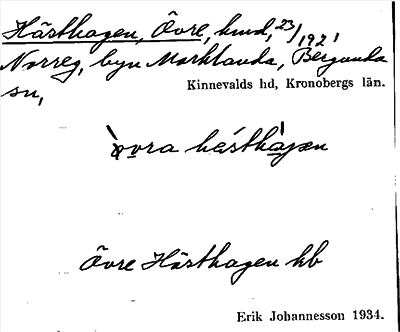 Hästhagen, Övre, hmd, 23/1921
Norreg, byn Marklanda, Bergunda
sn,
Kinnevalds hd, Kronobergs län.
òvra hásthàgen
Övre Hästhagen hb
Erik Johannesson 1934.